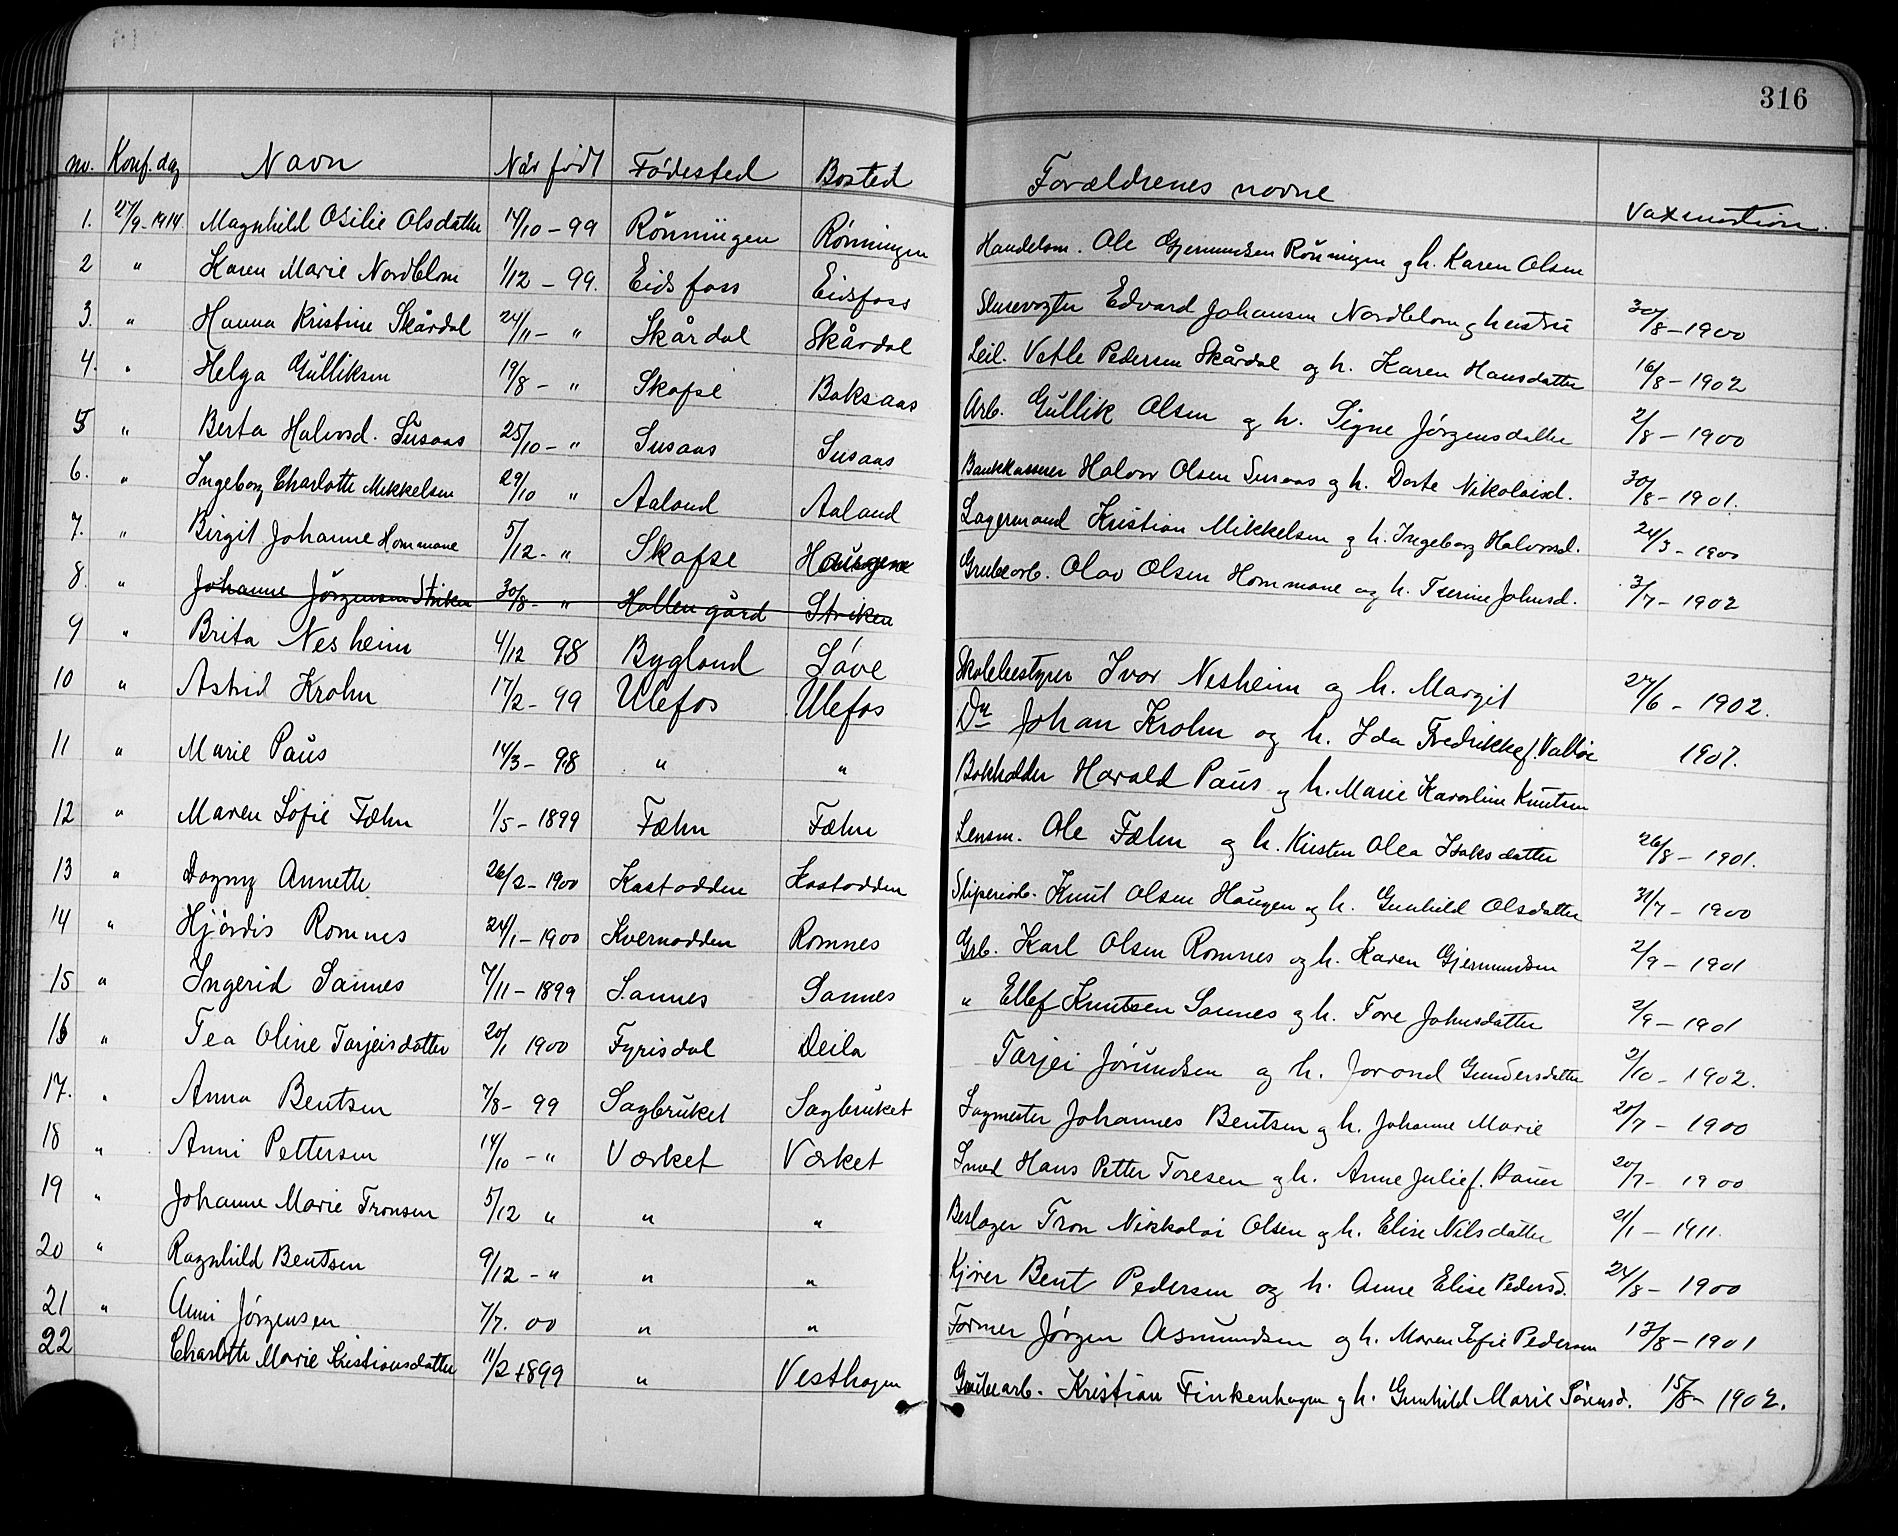 316
no. Konf. dag Navn Når født Fødested Bosted Forældrenes navne Vaxination.
1. 27/9-1914 Magnhild Osilie Olsdatter 14/10-99 Rønningen Rønningen Handelsm. Ole Gjermundsen Rønningen og h. Karen Olsen
2 " Karen Marie Nordblom 1/12-99. Eidsfoss Eidsfoss Slusevogter Edvard Johansen Nordblom og hustru 30/8-1900
3. " Hanna Kristine Skårdal 24/11- " Skårdal Skårdal Leil. Vetle Pedersen Skårdal og h. Karen Hansdatter 16/8-1902
4. " Helga Gulliksen 19/8- " Skafse Baksaas Arb. Gullik Olsen og h. Signe Jørgensdatter 2/8-1900
5 " Berta Halvorsd. Susaas 25/10- " Susaas Susaas Bankkasserer Halvor Olsen Susaas og h. Dorte Nikolaisd. 30/8-1901.
6. " Ingeborg Charlotte Mikkelsen 29/10 " Aaland Aaland Lagermand Kristian Mikkelsen og h. Ingeborg Halvorsd. 24/3-1900
7. " Birgit Johanne Hommane 5/12- " Skafse Haugene Grubearb. Olav Olsen Hommane og h. Tserine Johnsd. 3/7-1902
8. " Johanne Jørgensen Striken 30/8- " Hollen gård Striken
9 " Brita Nesheim 4/12 98 Bygland Søve Skolebestyrer Ivar Nesheim og h. Margit 27/6-1902.
10 " Astrid Krohn 17/2-99 Ulefos Ulefos Dr Johan Krohn og h. Ida Fredrikke f. Valløe 1907.
11 " Marie Paus 14/3-98 " " Bokholder Harald Paus og h. Marie Karoline Knutsen
12 " Maren Sofie Fæhn 1/5-1899 Fæhn Fæhn Lensm. Ole Fæhn og h. Kirsten Olea Isaksdatter 26/8-1901.
13 " Dagny Annette 26/2-1900 Kastodden Kastodden Sliperiarb. Knut Olsen Haugen og h. Gunhild Olsdatter 31/7-1900
14 " Hjørdis Romnes 24/1-1900 Kvernodden Romnes Grb. Karl Olsen Romnes og h. Karen Gjermundsen 2/9-1901
15 " Ingerid Sannes 7/11-1899 Sannes Sannes " Ellef Knutsen Sannes og h. Tore Johnsdatter 2/9-1901
16 " Tea Oline Tarjeisdatter 20/1 1900 Fyrisdal Deila Tarjei Jørundsen og h. Jorand Gundersdatter 2/10-1902.
17. " Anna Bentsen 7/8-99 Sagbruket Sagbruket Sagmester Johannes Bentsen og h. Johanne Marie 20/7-1900
18 " Anni Pettersen 14/10-" Værket Værket Smed Hans Petter Toresen og h. Anne Julie f. Bauer 20/7-1900
19 " Johanne Marie Tronsen 5/12 " " " Beslager Tron Nikkolai Olsen og h. Elise Nilsdatter 21/1-1911.
20 " Ragnhild Bentsen 9/12-" " " Kjører Bent Pedersen og h. Anne Elise Pedersd. 24/8-1900
21 " Anni Jørgensen 7/7. 00 " " Former Jørgen Asmundsen og h. Maren Sofie Pedersen 17/8-1901
22 Charlotte Marie Kristiansdatter 11/2 1899 " Vesthagen Grubearb. Kristian Finkenhagen og h. Gunhild Marie Sørensd. 15/8-1902.